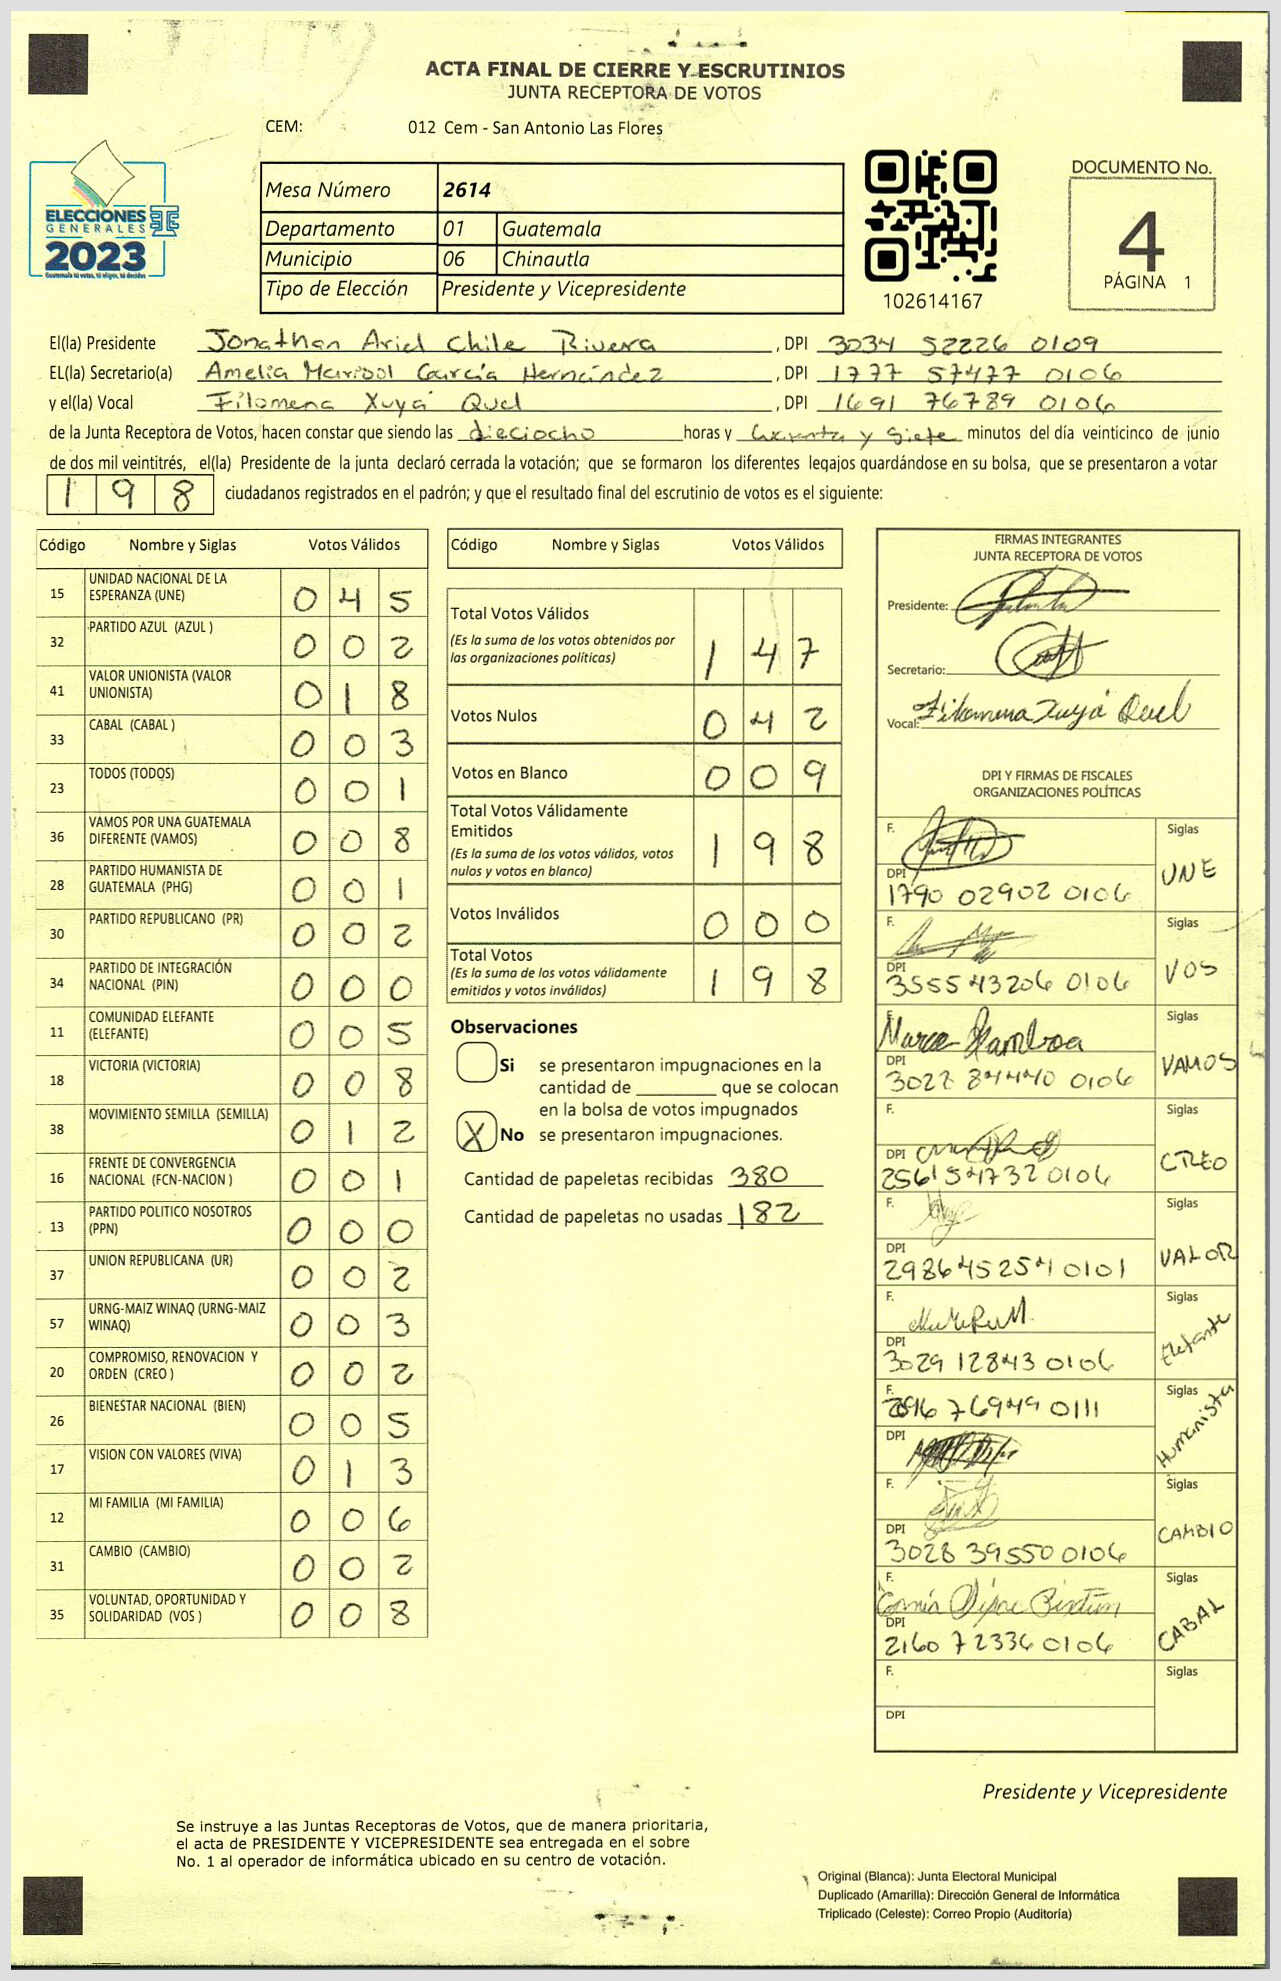 ACTA FINAL DE CIERRE Y ESCRUTINIOS
JUNTA RECEPTORA DE VOTOS
CEM: 012 Cem - San Antonio Las Flores
ELECCIONES
GENERALES
2023
Guatemala tú votas, tú eliges, tú decides
Mesa Número 2614
Departamento 01 Guatemala
Municipio 06 Chinautla
Tipo de Elección Presidente y Vicepresidente
102614167
DOCUMENTO No.
4
PÁGINA 1
El(la) Presidente Jonathan Ariel Chile Rivera, DPI 3034 52226 0109
EL(la) Secretario(a) Amelia Marisol García Hernández, DPI 1777 57477 0106
y el(la) Vocal Filomena Xuyá Quel, DPI 1691 76789 0106
de la Junta Receptora de Votos, hacen constar que siendo las dieciocho horas y y siete minutos del día veinticinco de junio
de dos mil veintitrés, el(la) Presidente de la junta declaró cerrada la votación; que se formaron los diferentes legajos quardándose en su bolsa, que se presentaron a votar
198 ciudadanos registrados en el padrón; y que el resultado final del escrutinio de votos es el siguiente:
Código Nombre y Siglas Votos Válidos
15 UNIDAD NACIONAL DE LA ESPERANZA (UNE) 045
32 PARTIDO AZUL (AZUL ) 002
41 VALOR UNIONISTA (VALOR UNIONISTA) 018
33 CABAL (CABAL ) 003
23 TODOS (TODOS) 001
36 VAMOS POR UNA GUATEMALA DIFERENTE (VAMOS) 008
28 PARTIDO HUMANISTA DE GUATEMALA (PHG) 001
30 PARTIDO REPUBLICANO (PR) 002
34 PARTIDO DE INTEGRACIÓN NACIONAL (PIN) 000
11 COMUNIDAD ELEFANTE (ELEFANTE) 005
18 VICTORIA (VICTORIA) 008
38 MOVIMIENTO SEMILLA (SEMILLA) 012
16 FRENTE DE CONVERGENCIA NACIONAL (FCN-NACION ) 001
13 PARTIDO POLITICO NOSOTROS (PPN) 000
37 UNION REPUBLICANA (UR) 002
57 URNG-MAIZ WINAQ (URNG-MAIZ WINAQ) 003
20 COMPROMISO, RENOVACION Y ORDEN (CREO ) 002
26 BIENESTAR NACIONAL (BIEN) 005
17 VISION CON VALORES (VIVA) 013
12 MI FAMILIA (MI FAMILIA) 006
31 CAMBIO (CAMBIO) 002
35 VOLUNTAD, OPORTUNIDAD Y SOLIDARIDAD (VOS ) 008
Código Nombre y Siglas Votos Válidos
Total Votos Válidos
(Es la suma de los votos obtenidos por
las organizaciones políticas) 147
Votos Nulos 042
Votos en Blanco 009
Total Votos Válidamente
Emitidos
(Es la suma de los votos válidos, votos
nulos y votos en blanco) 198
Votos Inválidos 000
Total Votos
(Es la suma de los votos válidamente
emitidos y votos inválidos) 198
Observaciones
Si se presentaron impugnaciones en la
cantidad de ________ que se colocan
en la bolsa de votos impugnados
X No se presentaron impugnaciones.
Cantidad de papeletas recibidas 380
Cantidad de papeletas no usadas 182
FIRMAS INTEGRANTES
JUNTA RECEPTORA DE VOTOS
Presidente:
Secretario:
Vocal: Filomena Xuyá Quel
DPI Y FIRMAS DE FISCALES
ORGANIZACIONES POLÍTICAS
F. Siglas
DPI 1790 02902 0106 UNE
F. Siglas
DPI 3555 43206 0106 VOS
F. Siglas
DPI 3022 84440 0106 VAMOS
F. Siglas
DPI 2561 54732 0106 CREO
F. Siglas
DPI 2986 45254 0101 VALOR
F. Siglas
DPI 3029 12843 0106 Elefante
F. 76949 0111 Siglas
DPI Humanista
F. Siglas
DPI 3028 39550 0106 CAMBIO
F. Siglas
DPI 2160 72336 0106 CABAL
F. Siglas
DPI
Presidente y Vicepresidente
Se instruye a las Juntas Receptoras de Votos, que de manera prioritaria,
el acta de PRESIDENTE Y VICEPRESIDENTE sea entregada en el sobre
No. 1 al operador de informática ubicado en su centro de votación.
Original (Blanca): Junta Electoral Municipal
Duplicado (Amarilla): Dirección General de Informática
Triplicado (Celeste): Correo Propio (Auditoría)